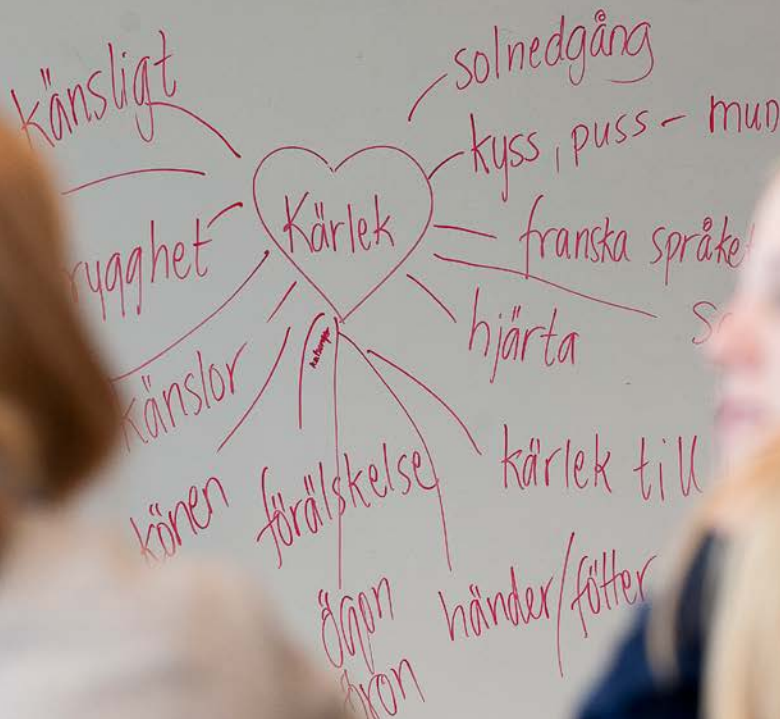 känsligt
solnedgång
kyss, puss - mun
Kärlek
franska språke
rygghet
hjärta
känslor
kärlek till
könen
förälskelse
händer/fötter
ögon
öron